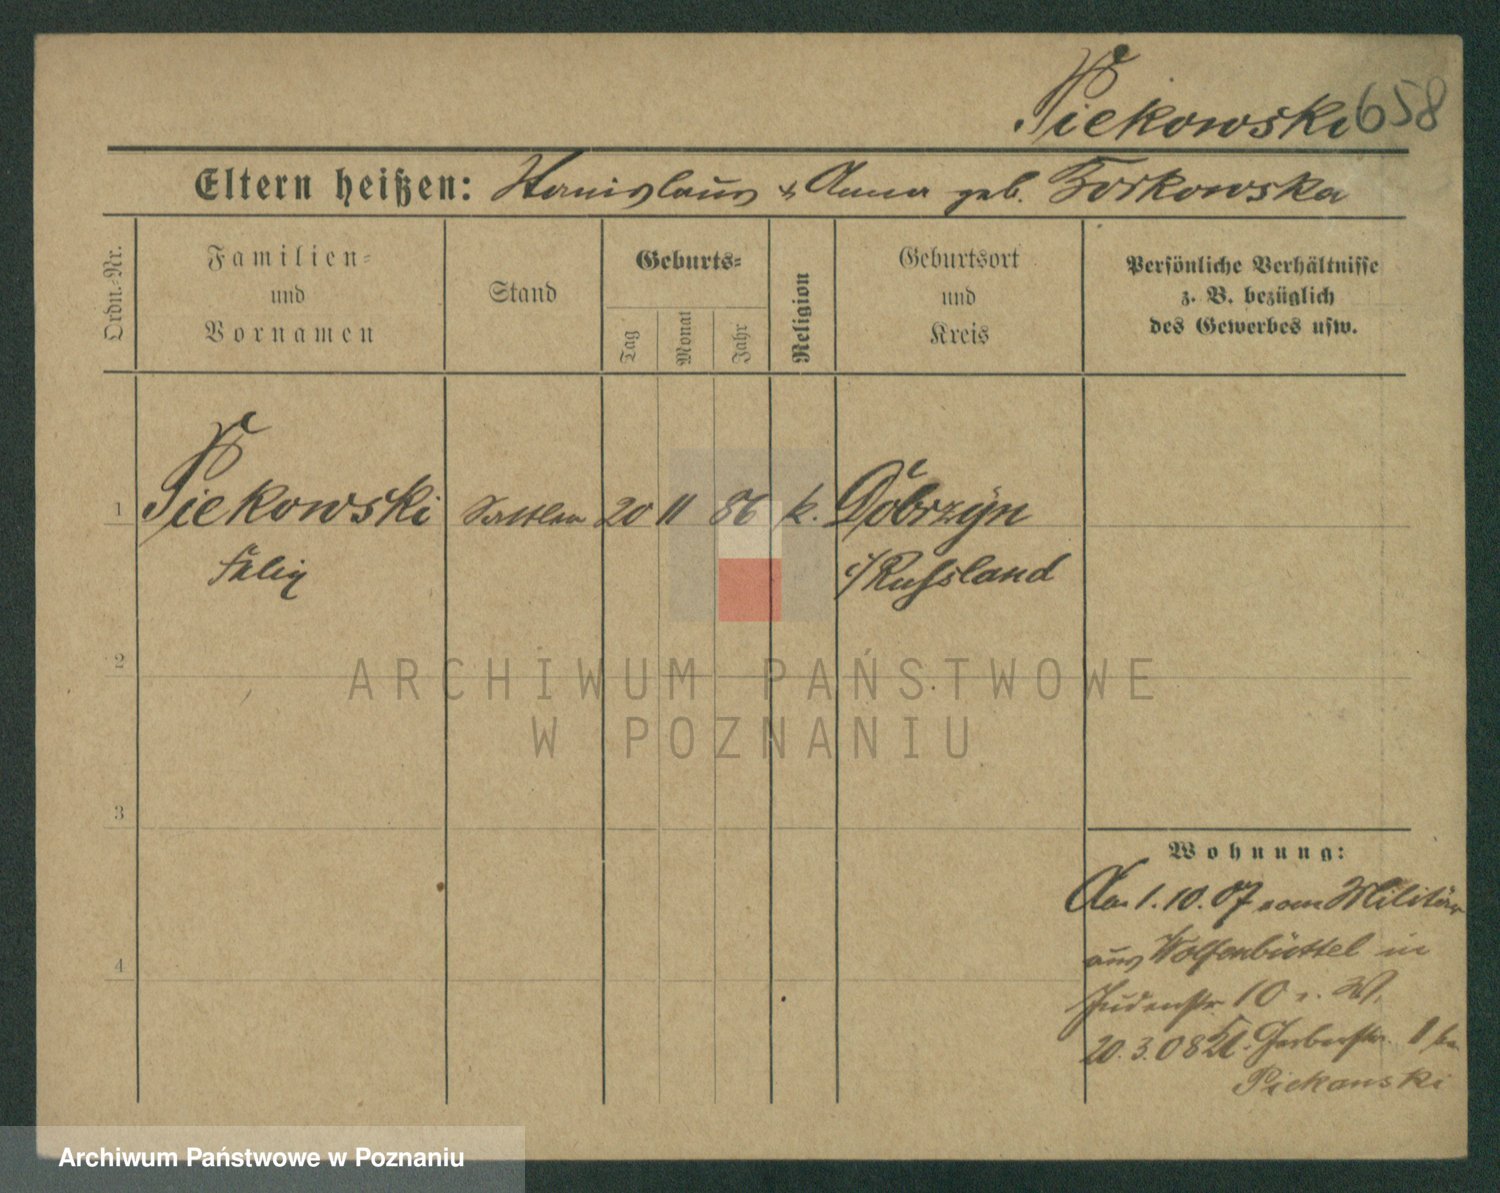 Piekowski 658
Eltern heißen: Stanislaus & Anna geb. Borkowska
Ordn.-Nr.
Familien-
und
Vornamen
Stand
Geburts-
Tag
Monat
Jahr
Religion
Geburtsort
und
Kreis
Persönliche Verhältnisse
z. B. bezüglich
des Gewerbes usw.
1 Piekowski Sattler 20 11 86 k. Dobrzyn
Felix i/Russland
2
ARCHIWUM PAŃSTWOWE
W POZNANIU
3
Wohnung:
Am 1.10.07 vom Militär
aus Wolfenbüttel in
4
Judenstr. 10
20.3.08 Gerberstr.
Piekanski
Archiwum Państwowe w Poznaniu